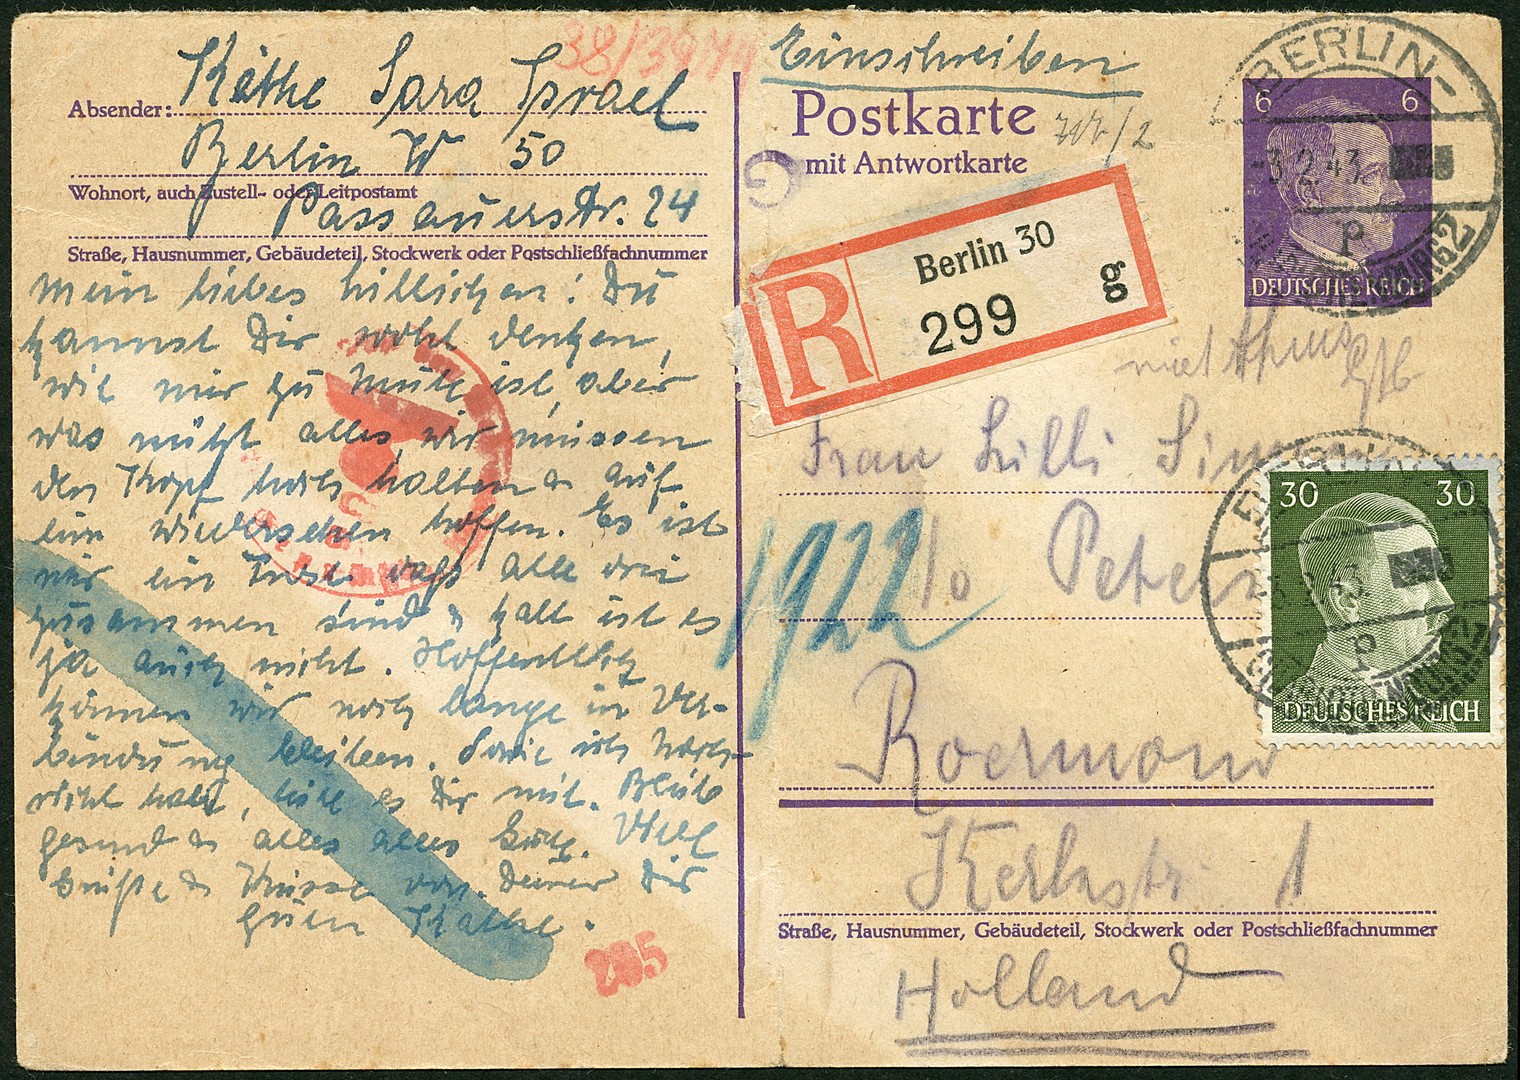 38/3944
Käthe Sara Israel
Absender:
Berlin W 50
Wohnort, auch Zustell- oder Leitpostamt
Passauerstr. 24
Straße, Hausnummer, Gebäudeteil, Stockwerk oder Postschließfachnummer
Mein liebes Lillichen! Du
kannst Dir wohl denken,
wie mir zu Mute ist, aber
was nützt alles, wir müssen
den Kopf hoch halten u auf
ein Wiedersehen hoffen. Es ist
nur ein Trost, daß alle drei
zusammen sind u kalt ist es
ja auch nicht. Hoffentlich
können wir noch lange in Ver-
bindung bleiben. Sowie ich Nach-
richt habe, teile es Dir mit. Bleib
gesund u alles alles Gute. Viele
Grüße u Küsse von Deiner Dir
guten Käthe.
205
Einschreiben
Postkarte
mit Antwortkarte
R
Berlin 30
299 g
6 6
DEUTSCHES REICH
BERLIN-
-3.2.43
P
CHARLOTTENBURG 2
Frau Lilli
1922
c/o Peters
Roermond
Kerkstr 1
Straße, Hausnummer, Gebäudeteil, Stockwerk oder Postschließfachnummer
Holland
30 30
DEUTSCHES REICH
BERLIN
-3.2.43
P
CHARLOTTENBURG 2